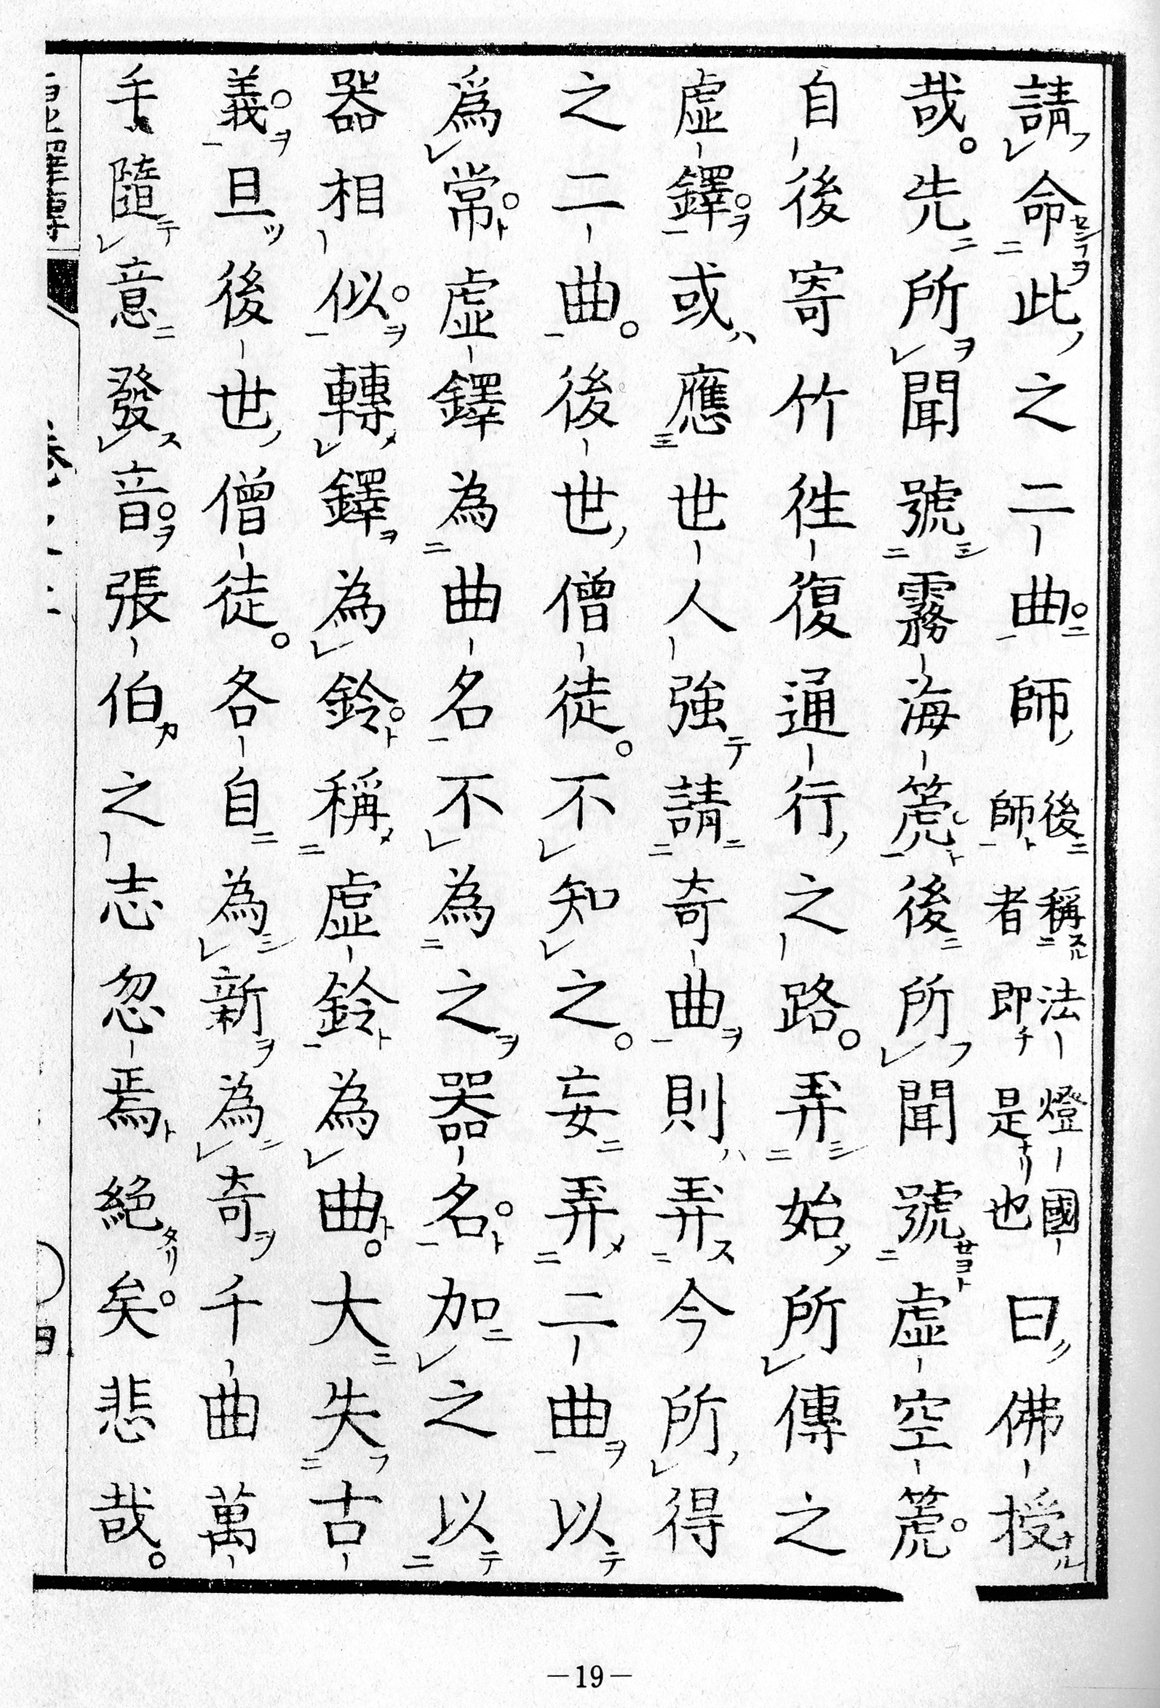 請命此之二曲師後稱法燈國師者即是也曰佛授
哉。先所聞號霧海箎後所聞號虛空箎。
自後寄竹徃復通行之路。弄始所傳之
虛鐸或應世人強請奇曲則弄今所得
之二曲。後世僧徒。不知之。妄弄二曲以
爲常虛鐸為曲名不為之器名加之以
器相似轉鐸為鈴稱虛鈴為曲。大失古
義且後世僧徒。各自為新為奇千曲萬
手隨意發音張伯之志忽焉絕矣。悲哉。
－19－